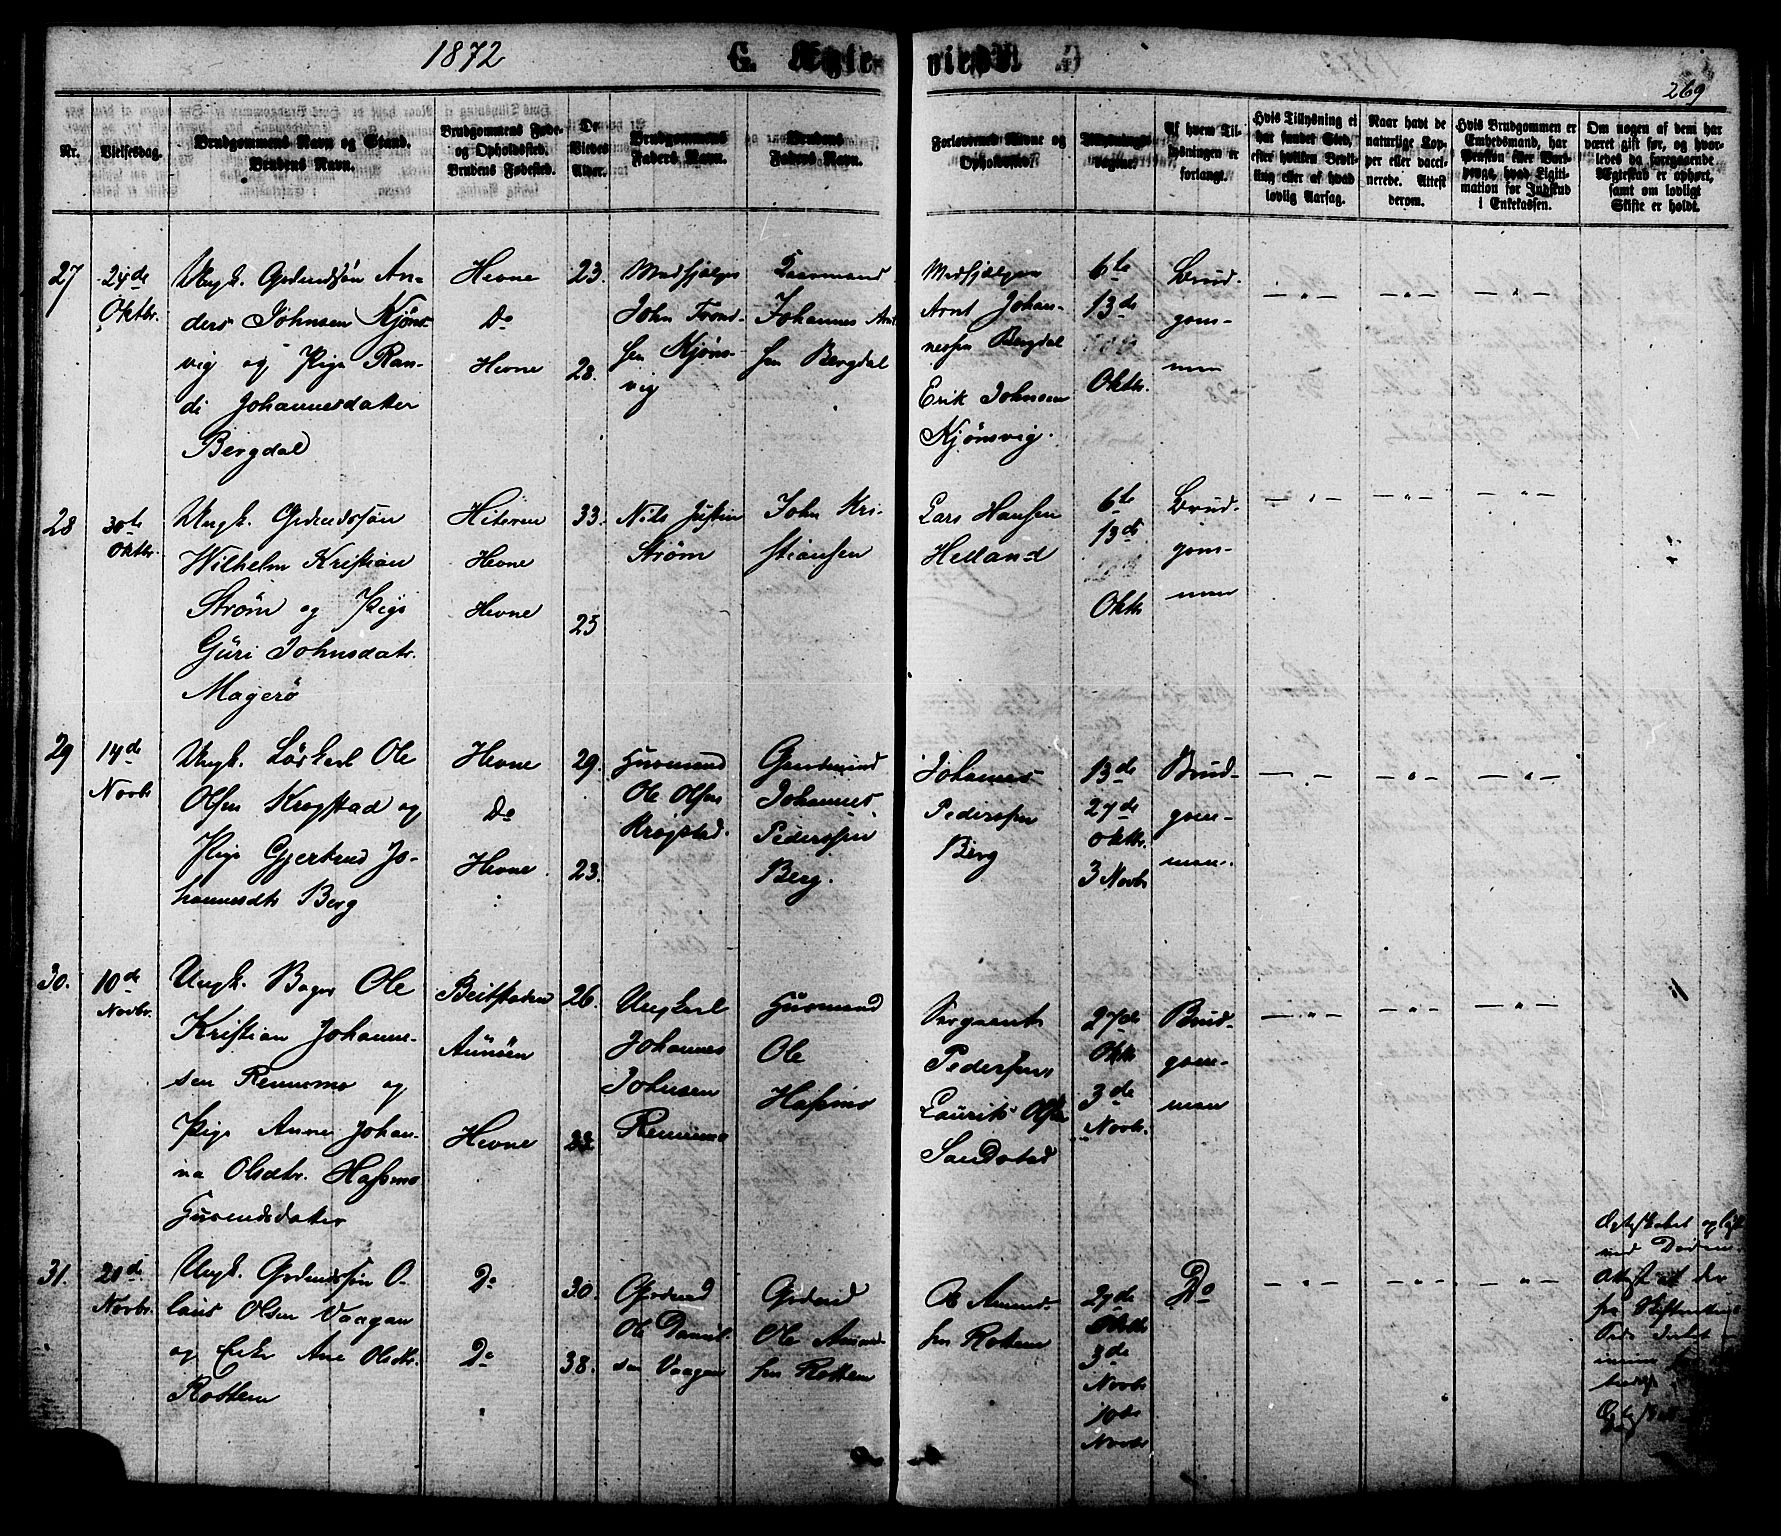 1872
G. Ægte-
viede.
269
Nr.
Vielsesdag.
Brudgommens Navn og Stand.
Brudens Navn.
Brudgommens Føde-
og Opholdssted.
Brudens Fødested.
De
Viedes
Alder.
Brudgommens
Faders Navn.
Brudens
Faders Navn.
Forlovernes Navne og
Opholdssted.
Tillysnings-
dagene.
Af hvem Til-
lysningen er
forlangt.
Hvis Tillysning ei
har fundet Sted,
efter hvilken Bevil-
ling eller af hvad
lovlig Aarsag.
Naar havt de
naturlige Kop-
per eller vacci-
nerede. Attest
derom.
Hvis Brudgommen er
Embedsmand, har
Pension eller Vart-
penge, hvad Ligiti-
mation for Indskud
i Enkekassen.
Om nogen af dem har
været gift før, og hvor-
ledes da foregaaende
Ægteskab er ophørt,
samt om lovligt
Skifte er holdt.
27
24de
Oktbr.
Ungk. Grdmdssøn An-
ders Johnsen Kjøns-
vig og Pige Ran-
di Johannesdatter
Bergdal
Hevne
Do
Hevne
23.
28.
John Trond-
sen Kjøns-
vig
Johannes Arnt
sen Bergdal
Arnt Johan-
nessen Bergdal
Erik Johnsen
Kjønsvig.
6te
13de
Oktbr.
Brud-
gom-
men
— „ —
— „ —
— „ —
28
30te
Oktbr.
Ungk. Grdmdssøn
Wilhelm Kristian
Strøm og Pige
Guri Johnsdatr.
Magerø
Hiteren
Hevne
Hevne
33.
25
Nils Justin
Strøm
John Kri-
stiansen
Lars Hansen
Helland
6te
13de
Oktbr
Brud-
gom-
men
— „ —
— „ —
— „ —
29
14de
Novbr
Ungk. Løskarl Ole
Olsen Krogstad og
Pige Gjertrud Jo-
hannesdtr Berg
Hevne
Do
Hevne
29.
23.
Husmand
Ole Olsen
Krogstad.
Gaardmand
Johannes
Pederssen
Berg.
Johannes
Pederssen
Berg
13de
27de
Oktbr.
3 Novbr
Brud-
gom-
men.
— „ —
— „ —
— „ —
30.
10de
Novbr.
Ungk. Bager Ole
Kristian Johanne-
sen Rennsmo og
Pige Anne Johan-
na Olsdtr. Hassmo
Husmdsdatter
Beitstaden
Aunøen
Hevne
26.
Ungkarl
Johannes
Johnsen
Husmand
Ole
Hassmo
Sergeant
Pedersen
Laurits Olsen
Sandstad
27de
Oktbr
3de
Novbr.
Brud-
gom-
men
— „ —
— „ —
— „ —
31.
Novbr.
Ungk. Grdmdssøn O-
laus Olsen Vaagan
og Enke Ane Olsdtr.
Rottem
Do
Do
30.
38.
Grdmd
Ole Daniel-
sen Vaagan
Grdmd
Ole Amund-
sen Rottem
Ole Amund-
sen Rottem
27de
Oktbr
3de
Novbr
10de
Novbr
Do
— „ —
— „ —
— „ —